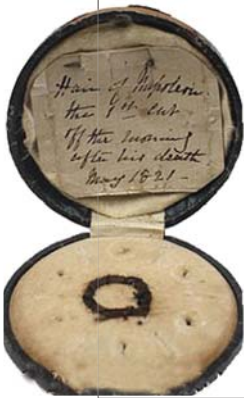 Hair of Napoleon.
the 1st cut
off the morning
after his death
May 1821 -